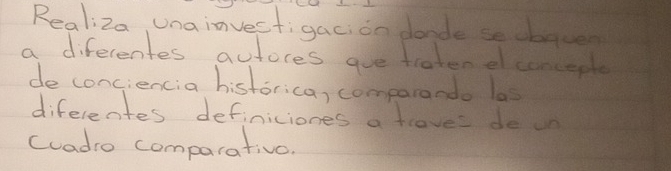 1.1
Realiza una investigación donde se ubiquen
a diferentes autores que traten el concepto
de conciencia histórica, comparando las
diferentes definiciones a traves de un
Cuadro comparativo.